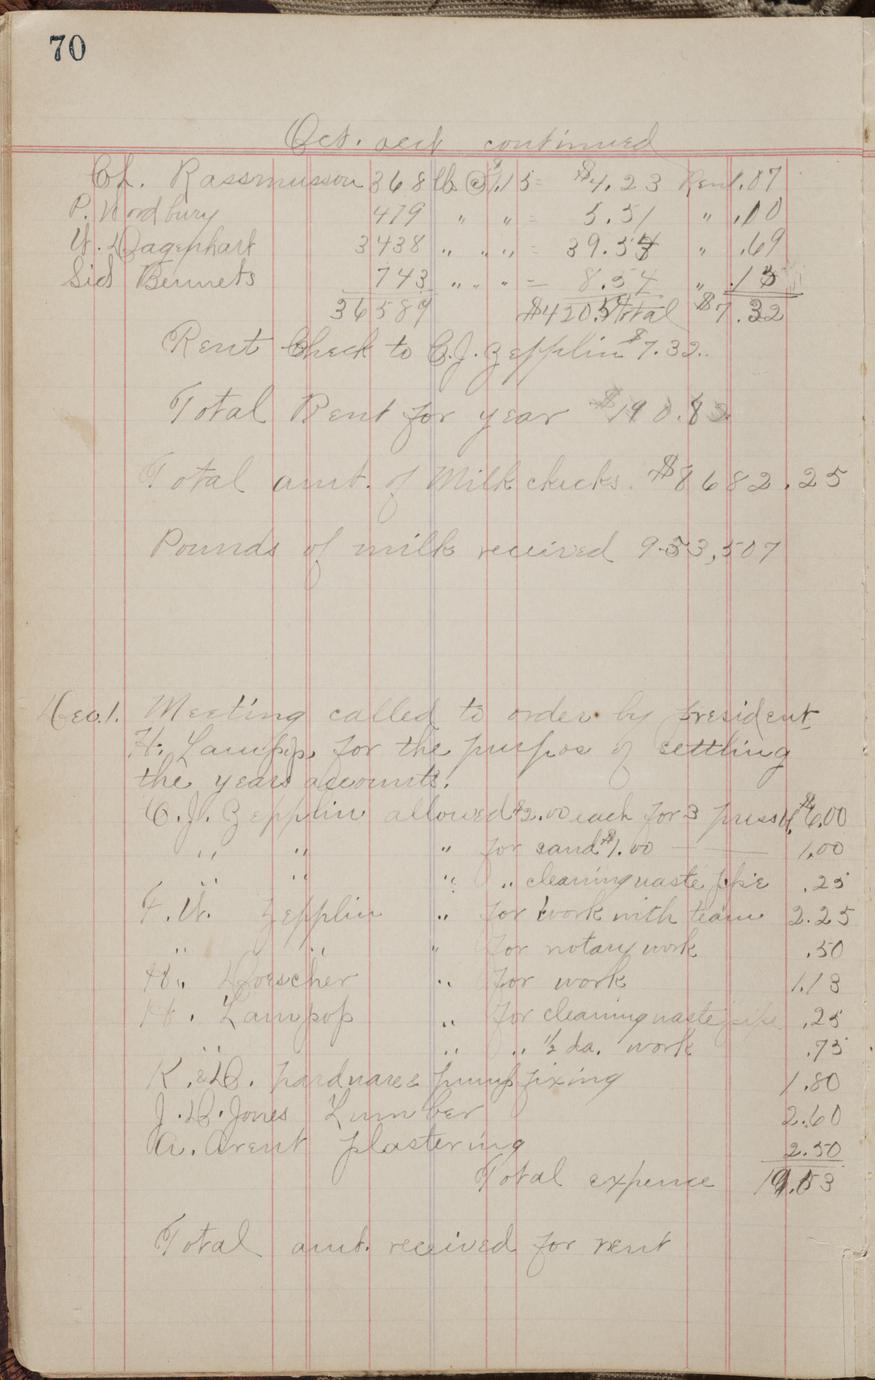 70
Oct. acct continued
Ch. Rassmusson 368 lb @ $1.15 = $4.23 Rent .07
P. Wodbury 479 " " = 5.51 " .10
W. Dagenhart 3438 " " " = 39.54 " .69
Sid Bennets 743 " " " = 8.54 " .15
36589 $420. Total $7.32
Rent Check to C.J. Zepplin $7.32
Total Rent for year $190.
Total amt. of Milk checks. $8682.25
Pounds of milk received 953,507
Dec. 1. Meeting called to order by president
H. Lampop for the purpos of settling
the years accounts.
C.J. Zepplin allowed $2.00 each for 3 $6.00
" " " for sand $1.00 1.00
" " " " cleaning waste pipe .25
F.W. Zepplin " for work with team 2.25
" " " for notary work .50
H. Doescher " for work 1.13
H. Lampop " for cleaning waste pipe .25
" " " ½ da. work .75
K. & D. hardware & pump fixing 1.80
J.D. Jones Lumber 2.60
A. Arent plastering 2.50
Total expense 19.03
Total amt. received for rent